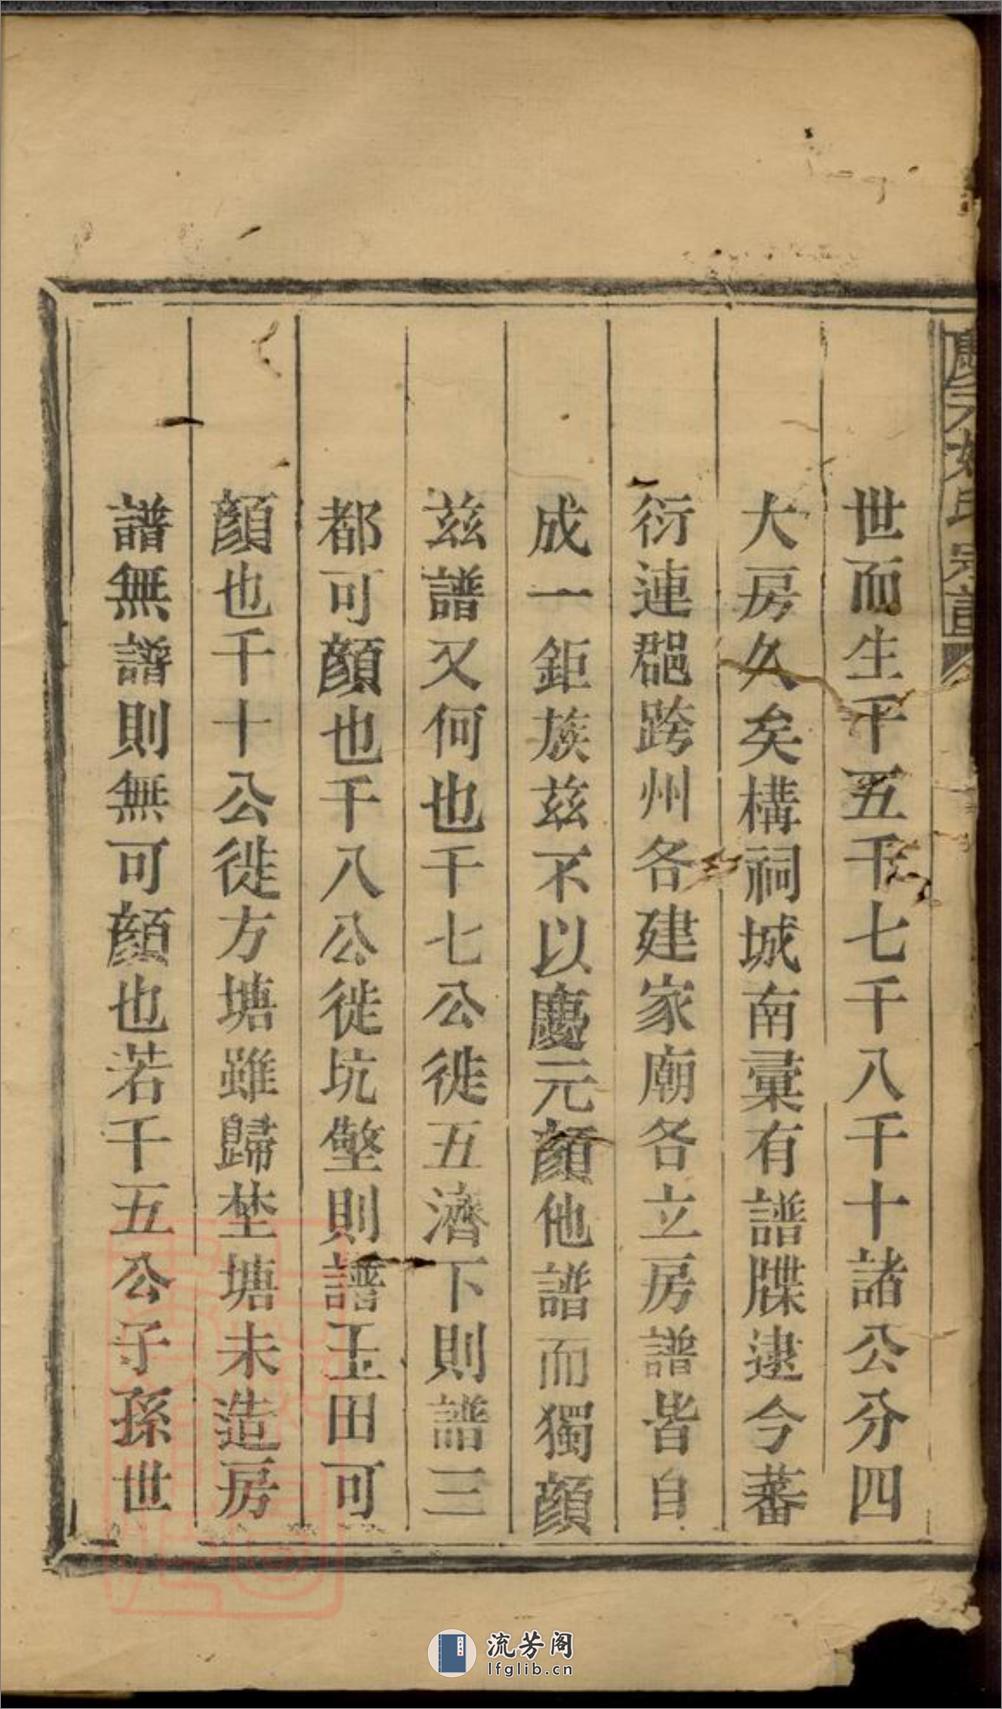 世而生千五千七千八千十諸公分四
大房久矣構祠城南彙有譜牒逮今蕃
衍連郡跨州各建家廟各立房譜皆自
成一鉅族茲不以慶元顔他譜而獨顔
茲譜又何也千七公徙五濟下則譜三
都可顔也千八公徙坑墼則譜玉田可
顔也千十公徙方塘雖歸塟塘未造房
譜無譜則無可顔也若千五公子孫世
流芳阁
lfglib.cn